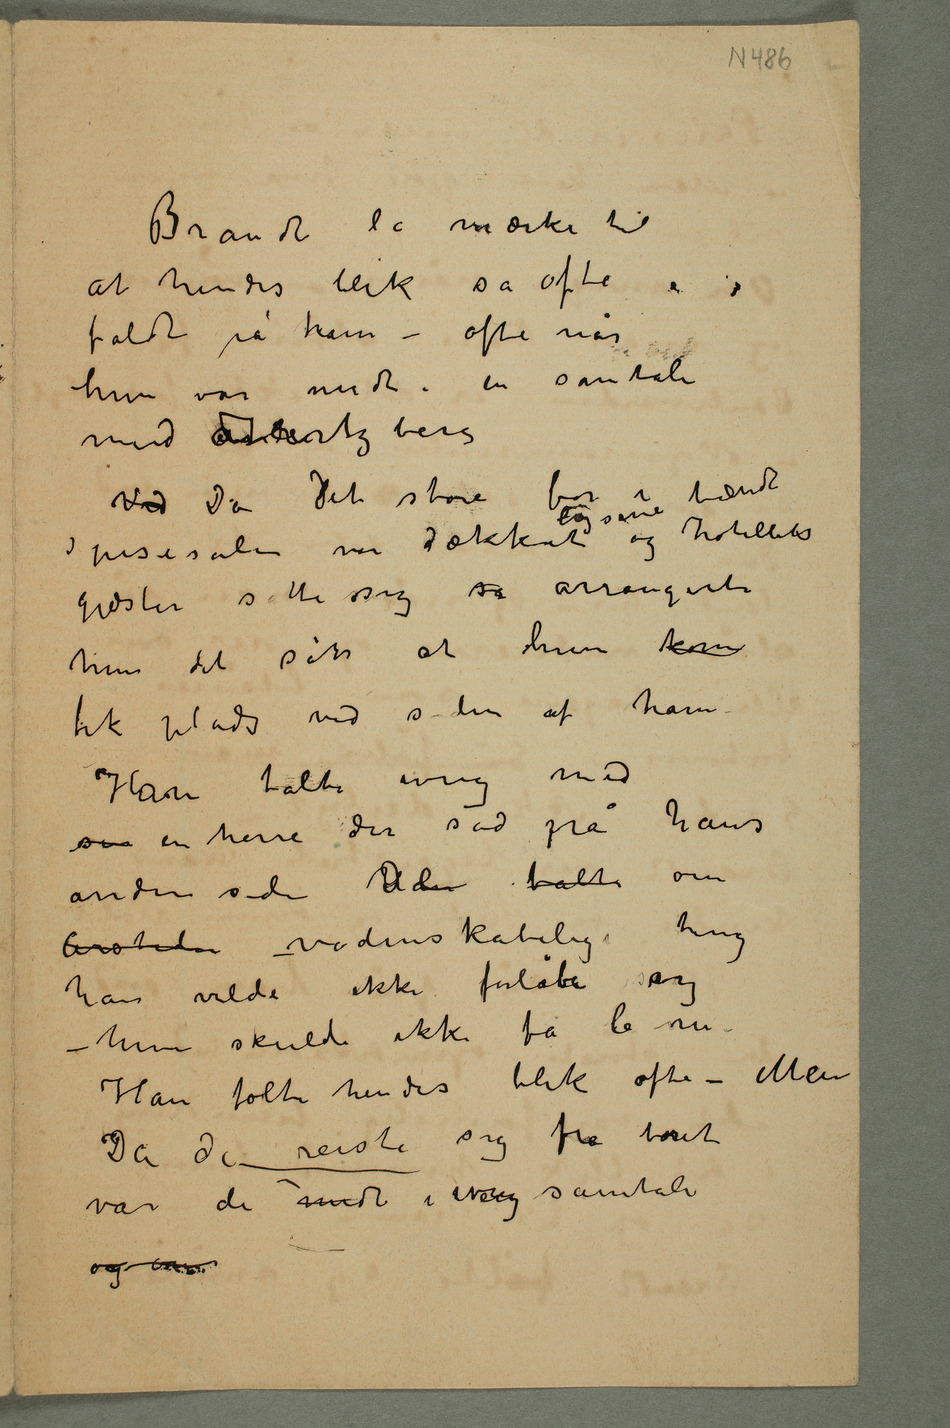 N 486
Brandt la mærke til
at hendes blik så ofte
faldt på ham – ofte når
hun var midt i en samtale
med berg
Ved Da Det store bor i
lysene tændt
spisesalen var dækket og hotellets
gjæster satte sig så arrangerte
hun det sån at hun kom
fik plads ved siden af ham –
Han talte ivrig med
en herre der sad på hans
anden side Uden talte om
Arstiden – videnskabelige ting
han vilde ikke forløbe sig
– hun skulde ikke få le
Han følte hendes blik ofte – Men
Da de reiste sig fra boret
var de midt i ivrig samtale
og